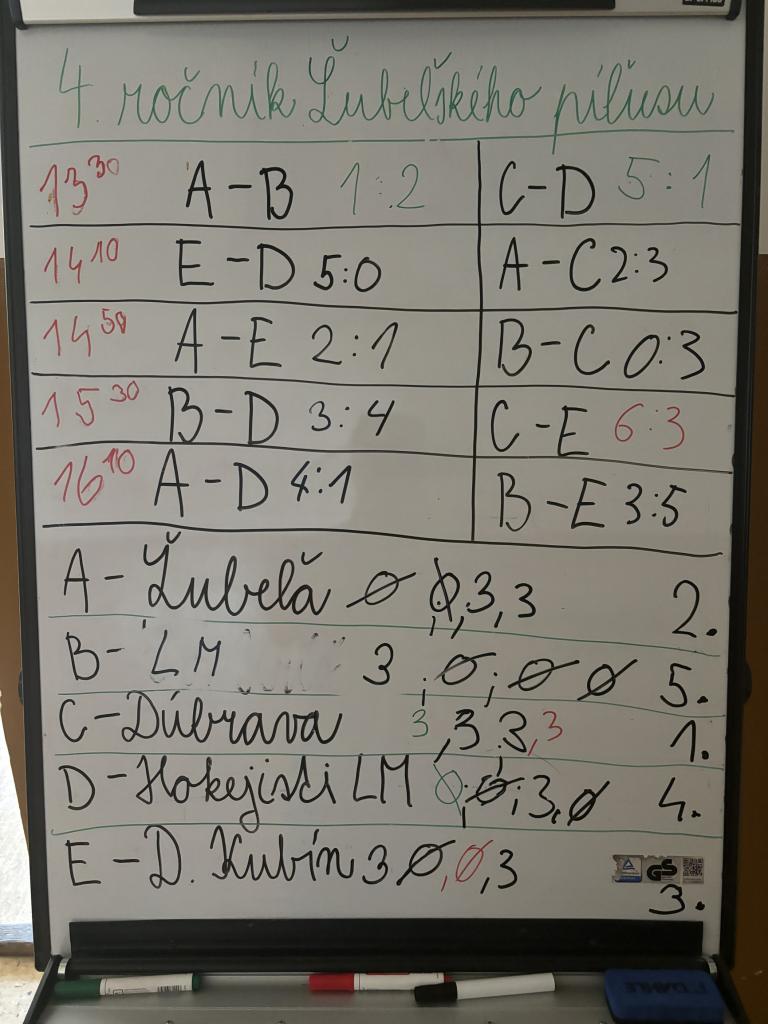 4. ročník Ľubeľského píľusu
13³⁰ A - B 1:2 C - D 5:1
14¹⁰ E - D 5:0 A - C 2:3
14⁵⁰ A - E 2:1 B - C 0:3
15³⁰ B - D 3:4 C - E 6:3
16¹⁰ A - D 4:1 B - E 3:5
A - Ľubeľa 0, 0, 3, 3 2.
B - LM 3, 0, 0, 0 5.
C - Dúbrava 3, 3, 3, 3 1.
D - Hokejisti LM 0, 0, 3, 0 4.
E - D. Kubín 3, 0, 0, 3 3.
GS
DAHLE